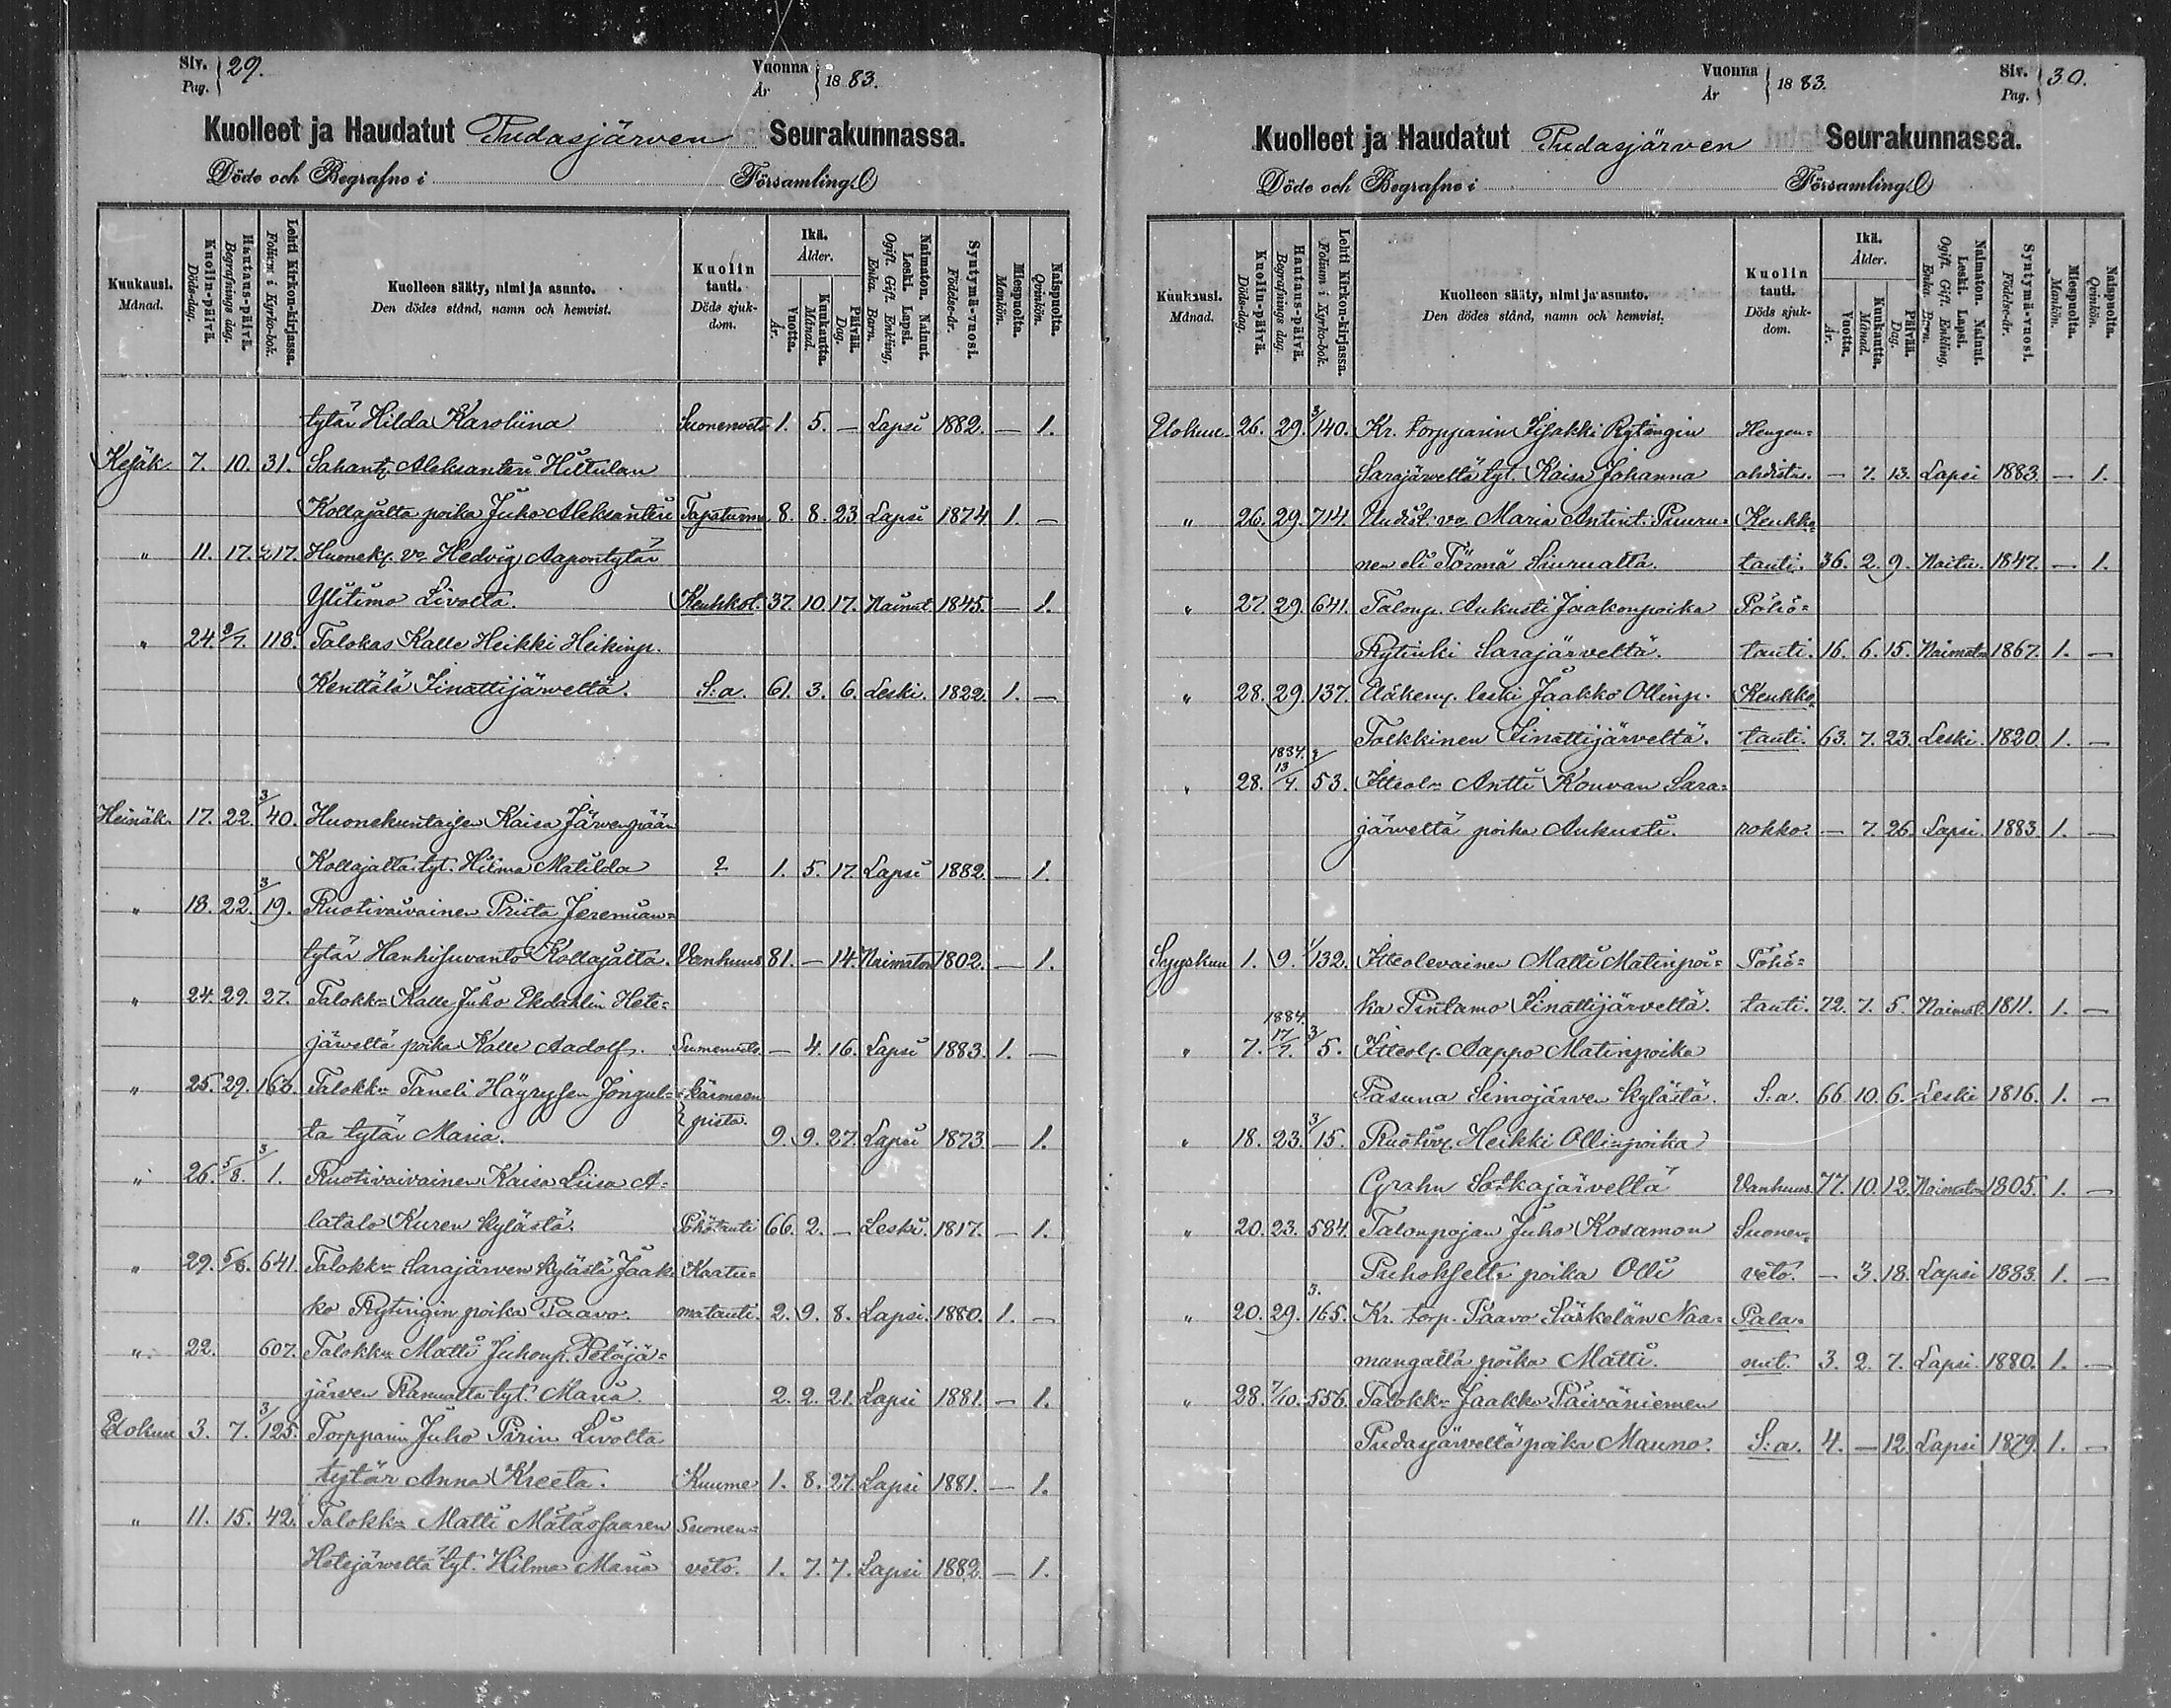 Siv. 29.
Pag.
Vuonna 1883.
År
Kuolleet ja Haudatut Pudasjärven Seurakunnassa.
Döde och Begrafne i Församling.
Kuukausi. Månad.
Kuolin-päivä. Döds-dag.
Hautaus-päivä. Begrafnings dag.
Lehti Kirkon-kirjassa. Folium i Kyrko-bok.
Kuolleen sääty, nimi ja asunto.
Den dödes stånd, namn och hemvist.
Kuolin tauti. Döds sjukdom.
Ikä. Ålder.
Vuotta. År.
Kuukautta. Månad.
Päivää. Dag.
Naimaton. Nainut. Leski. Lapsi. Ogift. Gift. Enkling. Enka. Barn.
Syntymä-vuosi. Födelse-år.
Miespuolta. Mankön.
Naispuolta. Qvinkön.
tytär Hilda Karoliina Suonenveto 1. 5. — Lapsi 1882. — 1.
Kesäk. 7. 10. 31. Aleksanteri Hiltulan
Kollajalta poika Juho Aleksanteri Tapaturma 8. 8. 23 Lapsi 1874 1. —
" 11. 17. 217. Huonek. vo Hedvig Aapontytär
Ylitimo Livolta. Keuhkot. 37. 10. 17. Nainut 1845. — 1.
" 24. 8/7. 118. Talokas Kalle Heikki Heikinp.
Kenttälä Iinattijärveltä. S:a. 61. 3. 6. Leski. 1822. 1. —
Heinäk. 17. 22. 3/40. Huonekuntaisen Kaisa Järvenpään
Kollajalta tyt. Hilma Matilda ? 1. 5. 17. Lapsi 1882. — 1.
" 18. 22. 3/19. Ruotivaivainen Priita Jeremian-
tytär Hanhisuvanto Kollajalta. Vanhuus 81. — 14. Naimaton 1802. — 1.
" 24. 29. 27. Talokk:n Kalle Juho Ekdahlin Hete-
järveltä poika Kalle Aadolf. Suonenveto — 4. 16. Lapsi 1883. 1. —
" 25. 29. 160. Talokk:n Taneli Häyrysen Jongul- käärmeen
ta tytär Maria. pisto. 9. 9. 27. Lapsi 1873. — 1.
" 26. 5/8. 3/1. Ruotivaivainen Kaisa Liisa A-
latalo Kuren kylästä. Pöhötauti 66. 2. — Leski. 1817. — 1.
" 29. 5/8. 641. Talokk:n Sarajärven kylästä Jaak- Kaatu-
ko Rytingin poika Paavo. matauti. 2. 9. 8. Lapsi. 1880. 1. —
" 22. 607. Talokk:n Matti Juhonp. Petäjä-
järven Ranualta tyt. Maria. 2. 2. 21. Lapsi 1881. — 1.
Elokuu 3. 7. 3/125. Torpparin Juho Pirin Livolta
tytär Anna Kreeta. Kuume 1. 8. 27. Lapsi 1881. — 1.
" 11. 15. 42. Talokk:n Matti Mätässaaren Suonen-
Hetejärveltä tyt. Hilma Maria veto. 1. 7. 7. Lapsi 1882. — 1.
Vuonna 1883.
År
Siv. 30.
Pag.
Kuolleet ja Haudatut Pudasjärven Seurakunnassa.
Döde och Begrafne i Församling.
Kuukausi. Månad.
Kuolin-päivä. Döds-dag.
Hautaus-päivä. Begrafnings dag.
Lehti Kirkon-kirjassa. Folium i Kyrko-bok.
Kuolleen sääty, nimi ja asunto.
Den dödes stånd, namn och hemvist.
Kuolin tauti. Döds sjukdom.
Ikä. Ålder.
Vuotta. År.
Kuukautta. Månad.
Päivää. Dag.
Naimaton. Nainut. Leski. Lapsi. Ogift. Gift. Enkling, Enka. Barn.
Syntymä-vuosi. Födelse-år.
Miespuolta. Mankön.
Naispuolta. Qvinkön.
Elokuu. 26. 29. 3/140. Kr. torpparin Iisakki Rytingin Hengen-
Sarajärveltä tyt. Kaisa Johanna ahdistus. — 7. 13. Lapsi 1883. — 1.
" 26. 29. 714. Uudist. vo Maria Antint. Puuru- Keuhko-
nen eli Törmä Siurualta. tauti. 36. 2. 9. Naitu. 1847. — 1.
" 27. 29. 641. Talonp. Aukusti Jaakonpoika Pöhö-
Rytinki Sarajärveltä. tauti. 16. 6. 15. Naimaton 1867. 1. —
" 28. 29. 137. leski Jaakko Ollinp. Keuhko-
Tolkkinen Iinattijärveltä. tauti. 63. 7. 23. Leski. 1820. 1. —
" 28. 1884. 13/4. 3/53. Itteol:n Antti Kouvan Sara-
järveltä poika Aukusti. rokko. — 7. 26. Lapsi. 1883 1. —
Syyskuu 1. 9. 1/132. Itteolevainen Matti Matinpoi- Pöhö-
ka Pintamo Iinattijärveltä. tauti. 72. 7. 5. Naimat. 1811. 1. —
" 7. 1884. 17/7. 3/5. Itteol. Aappo Matinpoika
Pasuna Simojärven kylästä. S:a. 66. 10. 6. Leski 1816. 1. —
" 18. 23. 3/15. Ruotiv. Heikki Ollinpoika
Grahn Sotkajärveltä Vanhuus. 77. 10. 12. Naimaton 1805. 1. —
" 20. 23. 584. Talonpojan Juho Kosamon Suonen-
Puhokselta poika Olli veto. — 3. 18. Lapsi 1883. 1. —
" 20. 29. 3. 165. Kr. torp. Paavo Särkelän Naa- Pala-
mangalta poika Matti. mut. 3. 2. 7. Lapsi. 1880. 1. —
" 28. 7/10. 556. Talokk:n Jaakko Päiväniemen
Pudasjärveltä poika Mauno. S:a. 4. — 12. Lapsi 1879. 1. —